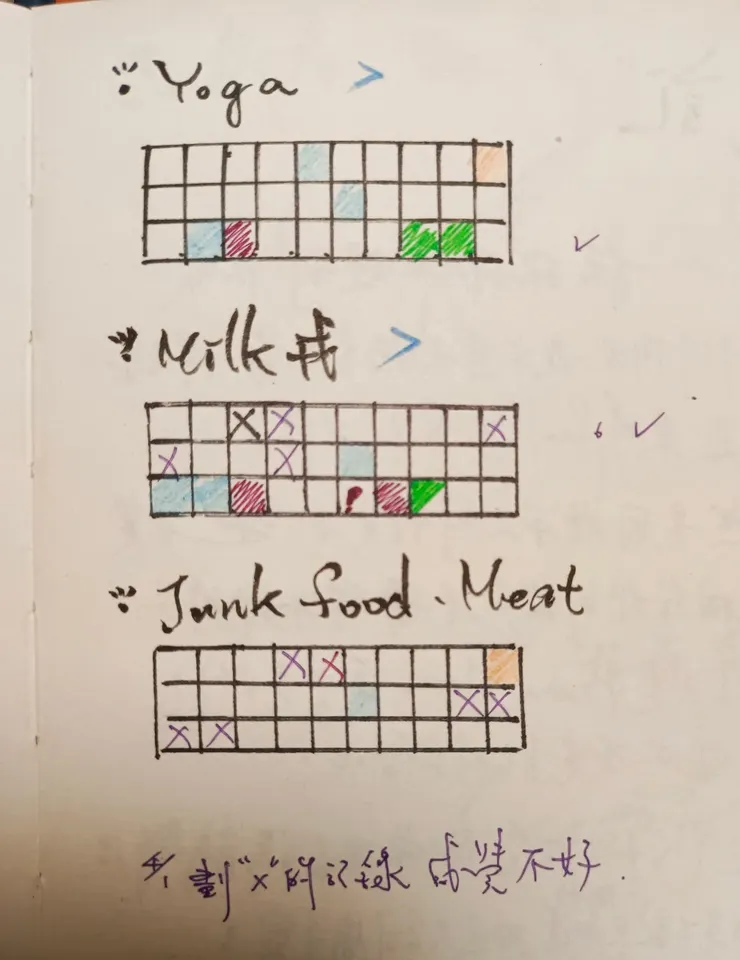 Yoga >
Milk 戒 >
Junk food . Meat
4/1 劃"x"的記錄 感覺不好.